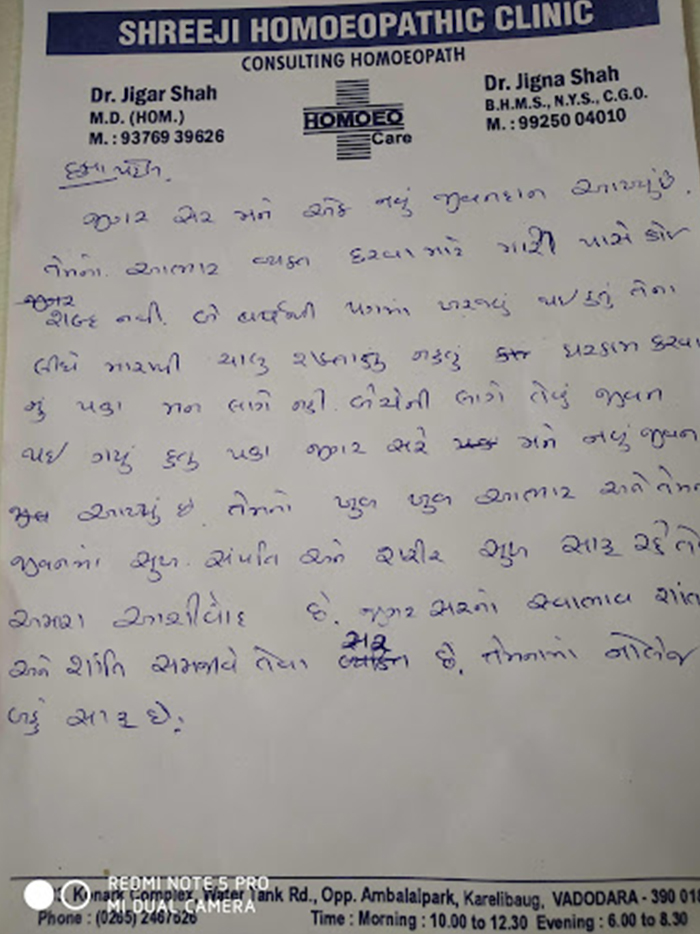 SHREEJI HOMOEOPATHIC CLINIC
CONSULTING HOMOEOPATH
Dr. Jigar Shah
M.D. (HOM.)
M. : 93769 39626
HOMOEO
Care
Dr. Jigna Shah
B.H.M.S., N.Y.S., C.G.O.
M. : 99250 04010
જીગર સર મને એક નવું જીવનદાન આપ્યું છે.
તેમનો આભાર વ્યક્ત કરવા માટે મારી પાસે કોઈ
શબ્દ નથી. બે વર્ષથી પગમાં ખરજવું થઈ હતું તેના
લીધે મારાથી ચાલુ શકાતું નહતું ઘરકામ કરવા
નું પણ મન લાગે નહી. બેચેની લાગે તેવું જીવન
થઈ ગયું હતુ પણ જીગર સરે મને નવું જીવન
આપ્યું છે. તેમનો ખુબ ખુબ આભાર અને તેમના
જીવનમાં સુખ. સંપતિ અને શરીર સુખ સારૂ રહે તે
અમારા આશીર્વાદ છે. જીગર સરનો સ્વાભાવ શાંત
અને શાંતિ સમજાવે તેવા સર છે. તેમનામાં નોલેજ
બહું સારૂ છે.
Konark Complex, Water Tank Rd., Opp. Ambalalpark, Karelibaug, VADODARA - 390 018
Phone : (0265) 2467526 Time : Morning : 10.00 to 12.30 Evening : 6.00 to 8.30
REDMI NOTE 5 PRO
MI DUAL CAMERA